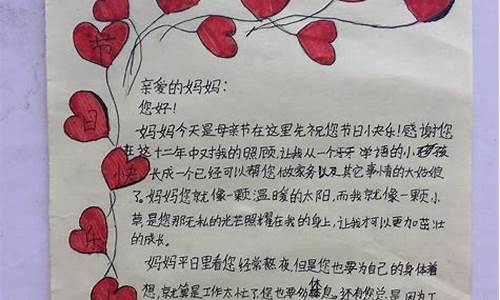 节
日
快
乐
亲爱的妈妈：
您好！
妈妈今天是母亲节在这里先祝您节日快乐！感谢您
在这十二年中对我的照顾，让我从一个牙牙学语的小孩
长成一个已经可以帮您做家务以及其它事情的大姑娘
了。妈妈您就像一颗温暖的太阳，而我就像一颗小
草是您那无私的光芒照耀在我的身上，让我才可以更加茁壮
的成长。
妈妈平日里看您经常熬夜，但是您也要为自己的身体着
想，就算是工作太忙了您也要休息。还有您总是因为工